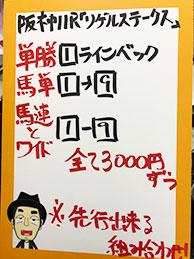 阪神11R「リゲルステークス」
単勝 1 ラインベック
馬単 1→9
馬連とワイド 1-9
全て3000円
ずつ
※先行出来る
組み合わせ